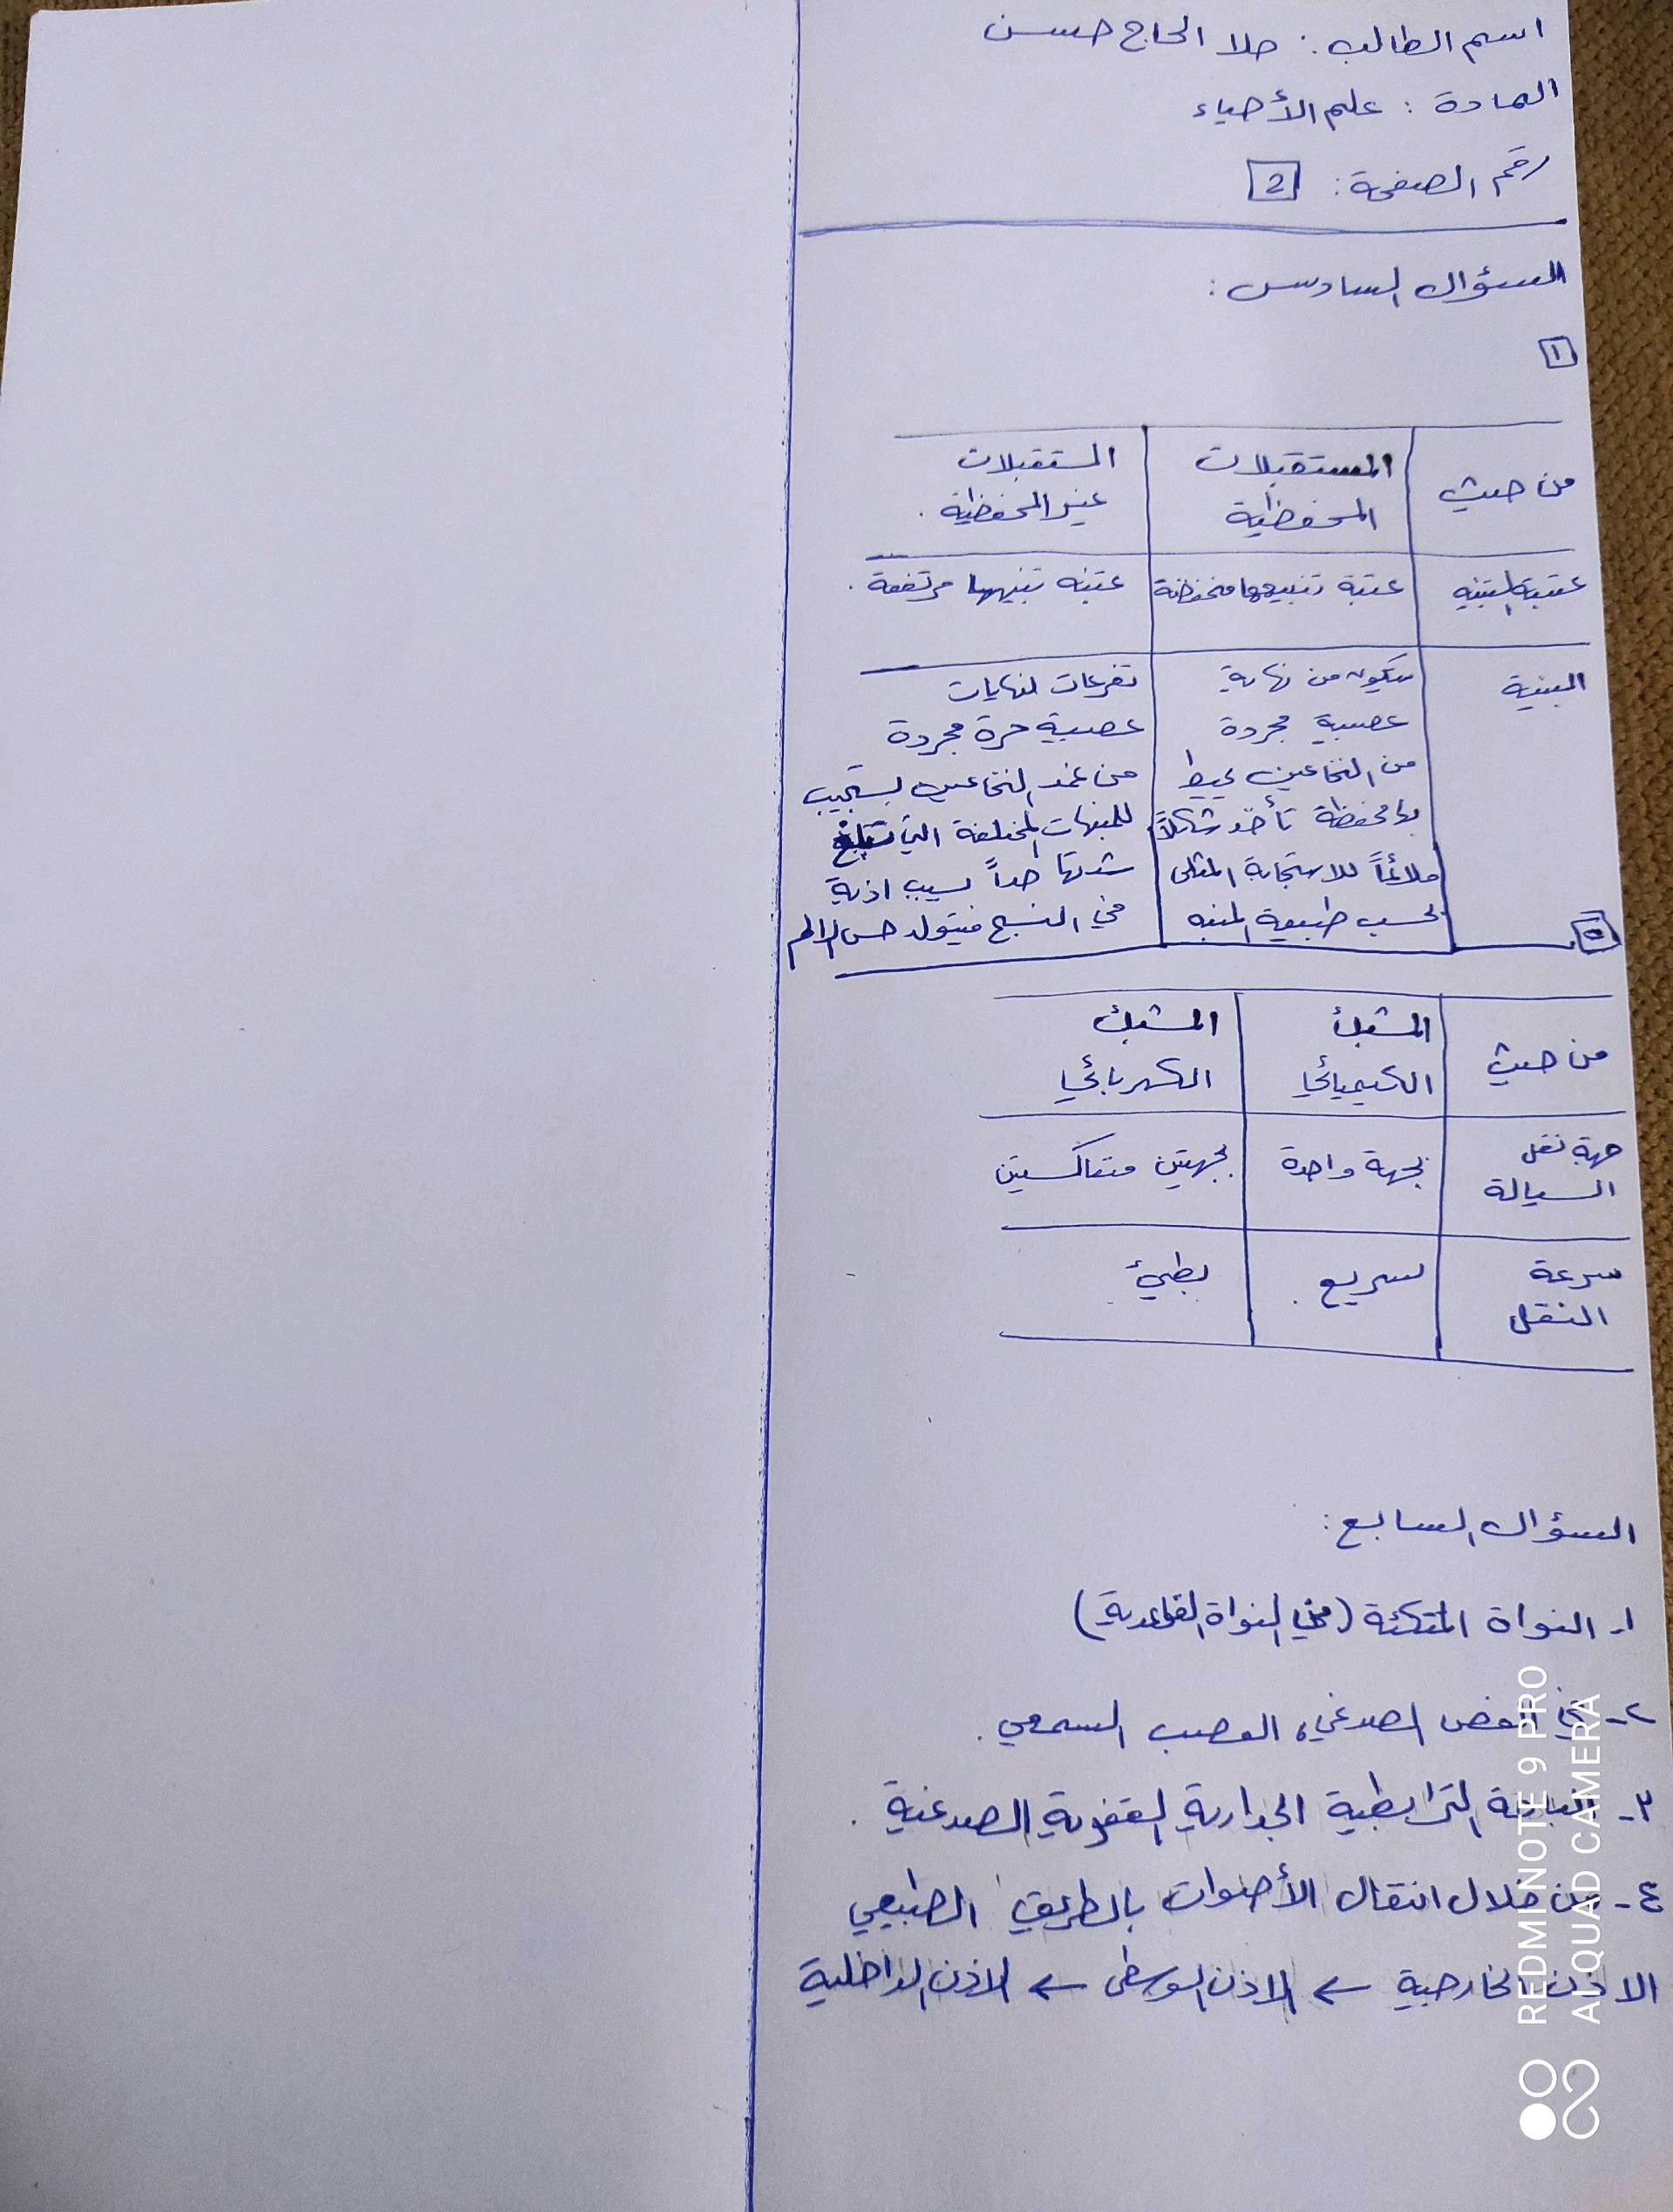 اسم الطالب: حلا الحاج حسن
المادة: علم الأحياء
رقم الصفحة: 2
السؤال السادس:
١
من حيث | المستقبلات المحفظية | المستقبلات غير المحفظية.
عتبة التنبيه | عتبة تنبيهها منخفضة | عتبة تنبيهها مرتفعة.
البنية | يتكون من نهاية | تفرعات لنهايات
عصبية مجردة | عصبية حرة مجردة
من النخاعين يحيط | من غمد النخاعين يستجيب
بها محفظة تأخذ شكلاً | للمنبهات المختلفة التي تبلغ
ملائماً للاستجابة المثلى | شدتها حداً يسبب اذية
لحسب طبيعة المنبه | في النسج فيتولد حس الالم
من حيث | المشبك الكيميائي | المشبك الكهربائي
جهة نقل السيالة | بجهة واحدة | بجهتين متعاكستين
سرعة النقل | سريع. | بطيئ
السؤال السابع:
١- النواة المتكئة (في النواة القاعدية)
٢- في الفص الصدغي، العصب السمعي.
٣- الباحة الترابطية الجدارية القفوية الصدغية.
٤- من خلال انتقال الأصوات بالطريق الطبيعي
الاذن الخارجية ← الاذن الوسطى ← الاذن الداخلية
REDMI NOTE 9 PRO
AI QUAD CAMERA